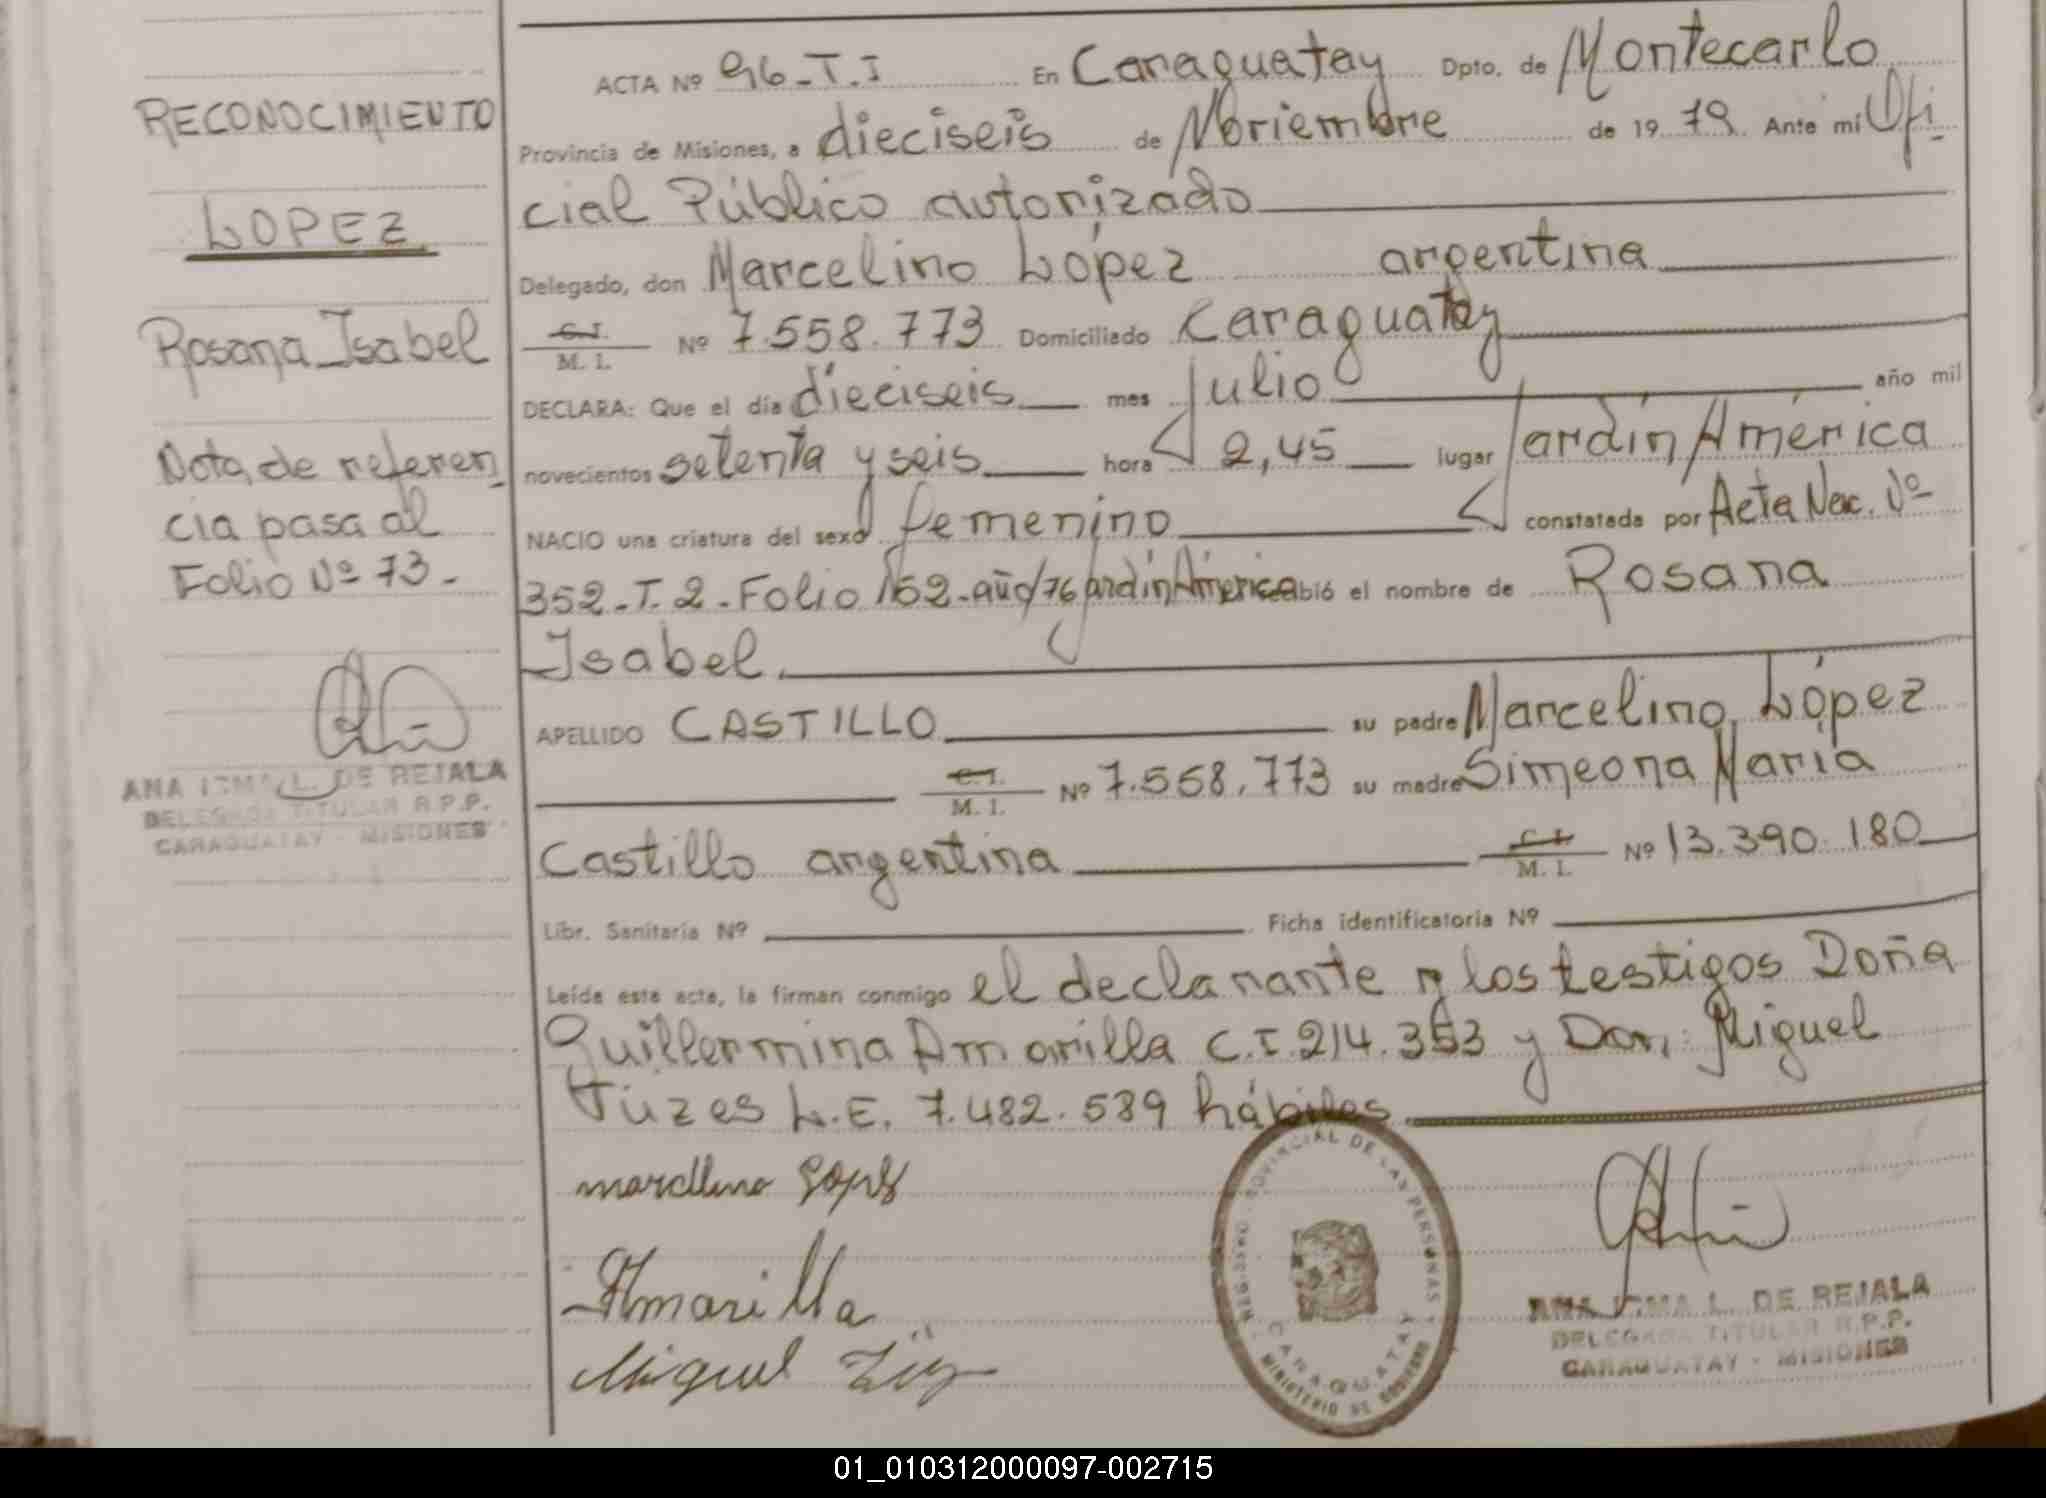 RECONOCIMIENTO
LOPEZ
Rosana Isabel
Nota de referen
cia pasa al
Folio Nº 73.-
ANA IRMA L. DE REJALA
DELEGADA TITULAR R.P.P.
CARAGUATAY - MISIONES
ACTA Nº 96-T.I En Caraguatay Dpto. de Montecarlo
Provincia de Misiones, a dieciseis de Noviembre de 19 79 Ante mí Ofi-
cial Público autorizado
Delegado, don Marcelino López argentina
C.I. M. I. Nº 7.558.773 Domiciliado Caraguatay
DECLARA: Que el día dieciseis mes Julio año mil
novecientos setenta y seis hora 2,45 lugar Jardín América
NACIO una criatura del sexo femenino constatada por Acta Nac. Nº
352-T.2-Folio 152-año/76 Jardín América recibió el nombre de Rosana
Isabel.
APELLIDO CASTILLO su padre Marcelino López
C.I. M. I. Nº 7.558.773 su madre Simeona María
Castillo argentina C.I. M. I. Nº 13.390.180
Libr. Sanitaria Nº Ficha identificatoria Nº
Leída este acta, la firman conmigo el declarante y los testigos Doña
Guillermina Amarilla C.I. 214.353 y Don, Miguel
L.E. 7.482.589 hábiles
Amarilla
Miguel
REGISTRO PROVINCIAL DE LAS PERSONAS
CARAGUATAY
MINISTERIO DE GOBIERNO
ANA IRMA L. DE REJALA
DELEGADA TITULAR R.P.P.
CARAGUATAY - MISIONES
01_010312000097-002715